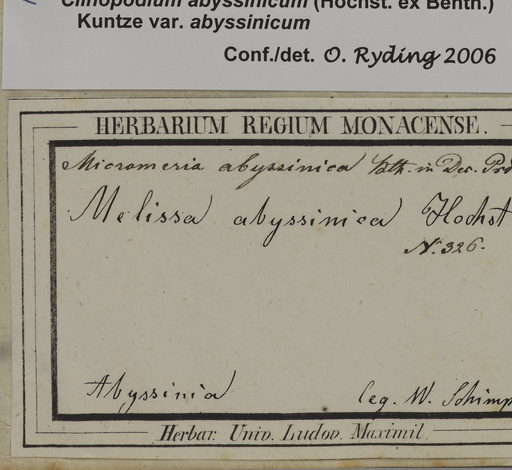 Clinopodium abyssinicum (Hochst. ex Benth.)
Kuntze var. abyssinicum
Conf./det. O. Ryding 2006
HERBARIUM REGIUM MONACENSE.
Micromeria abyssinica bth. in Dec. Prd
Melissa abyssinica Hochst
N. 326.
Abyssinia
leg. W. Schimp
Herbar. Univ. Ludov. Maximil.